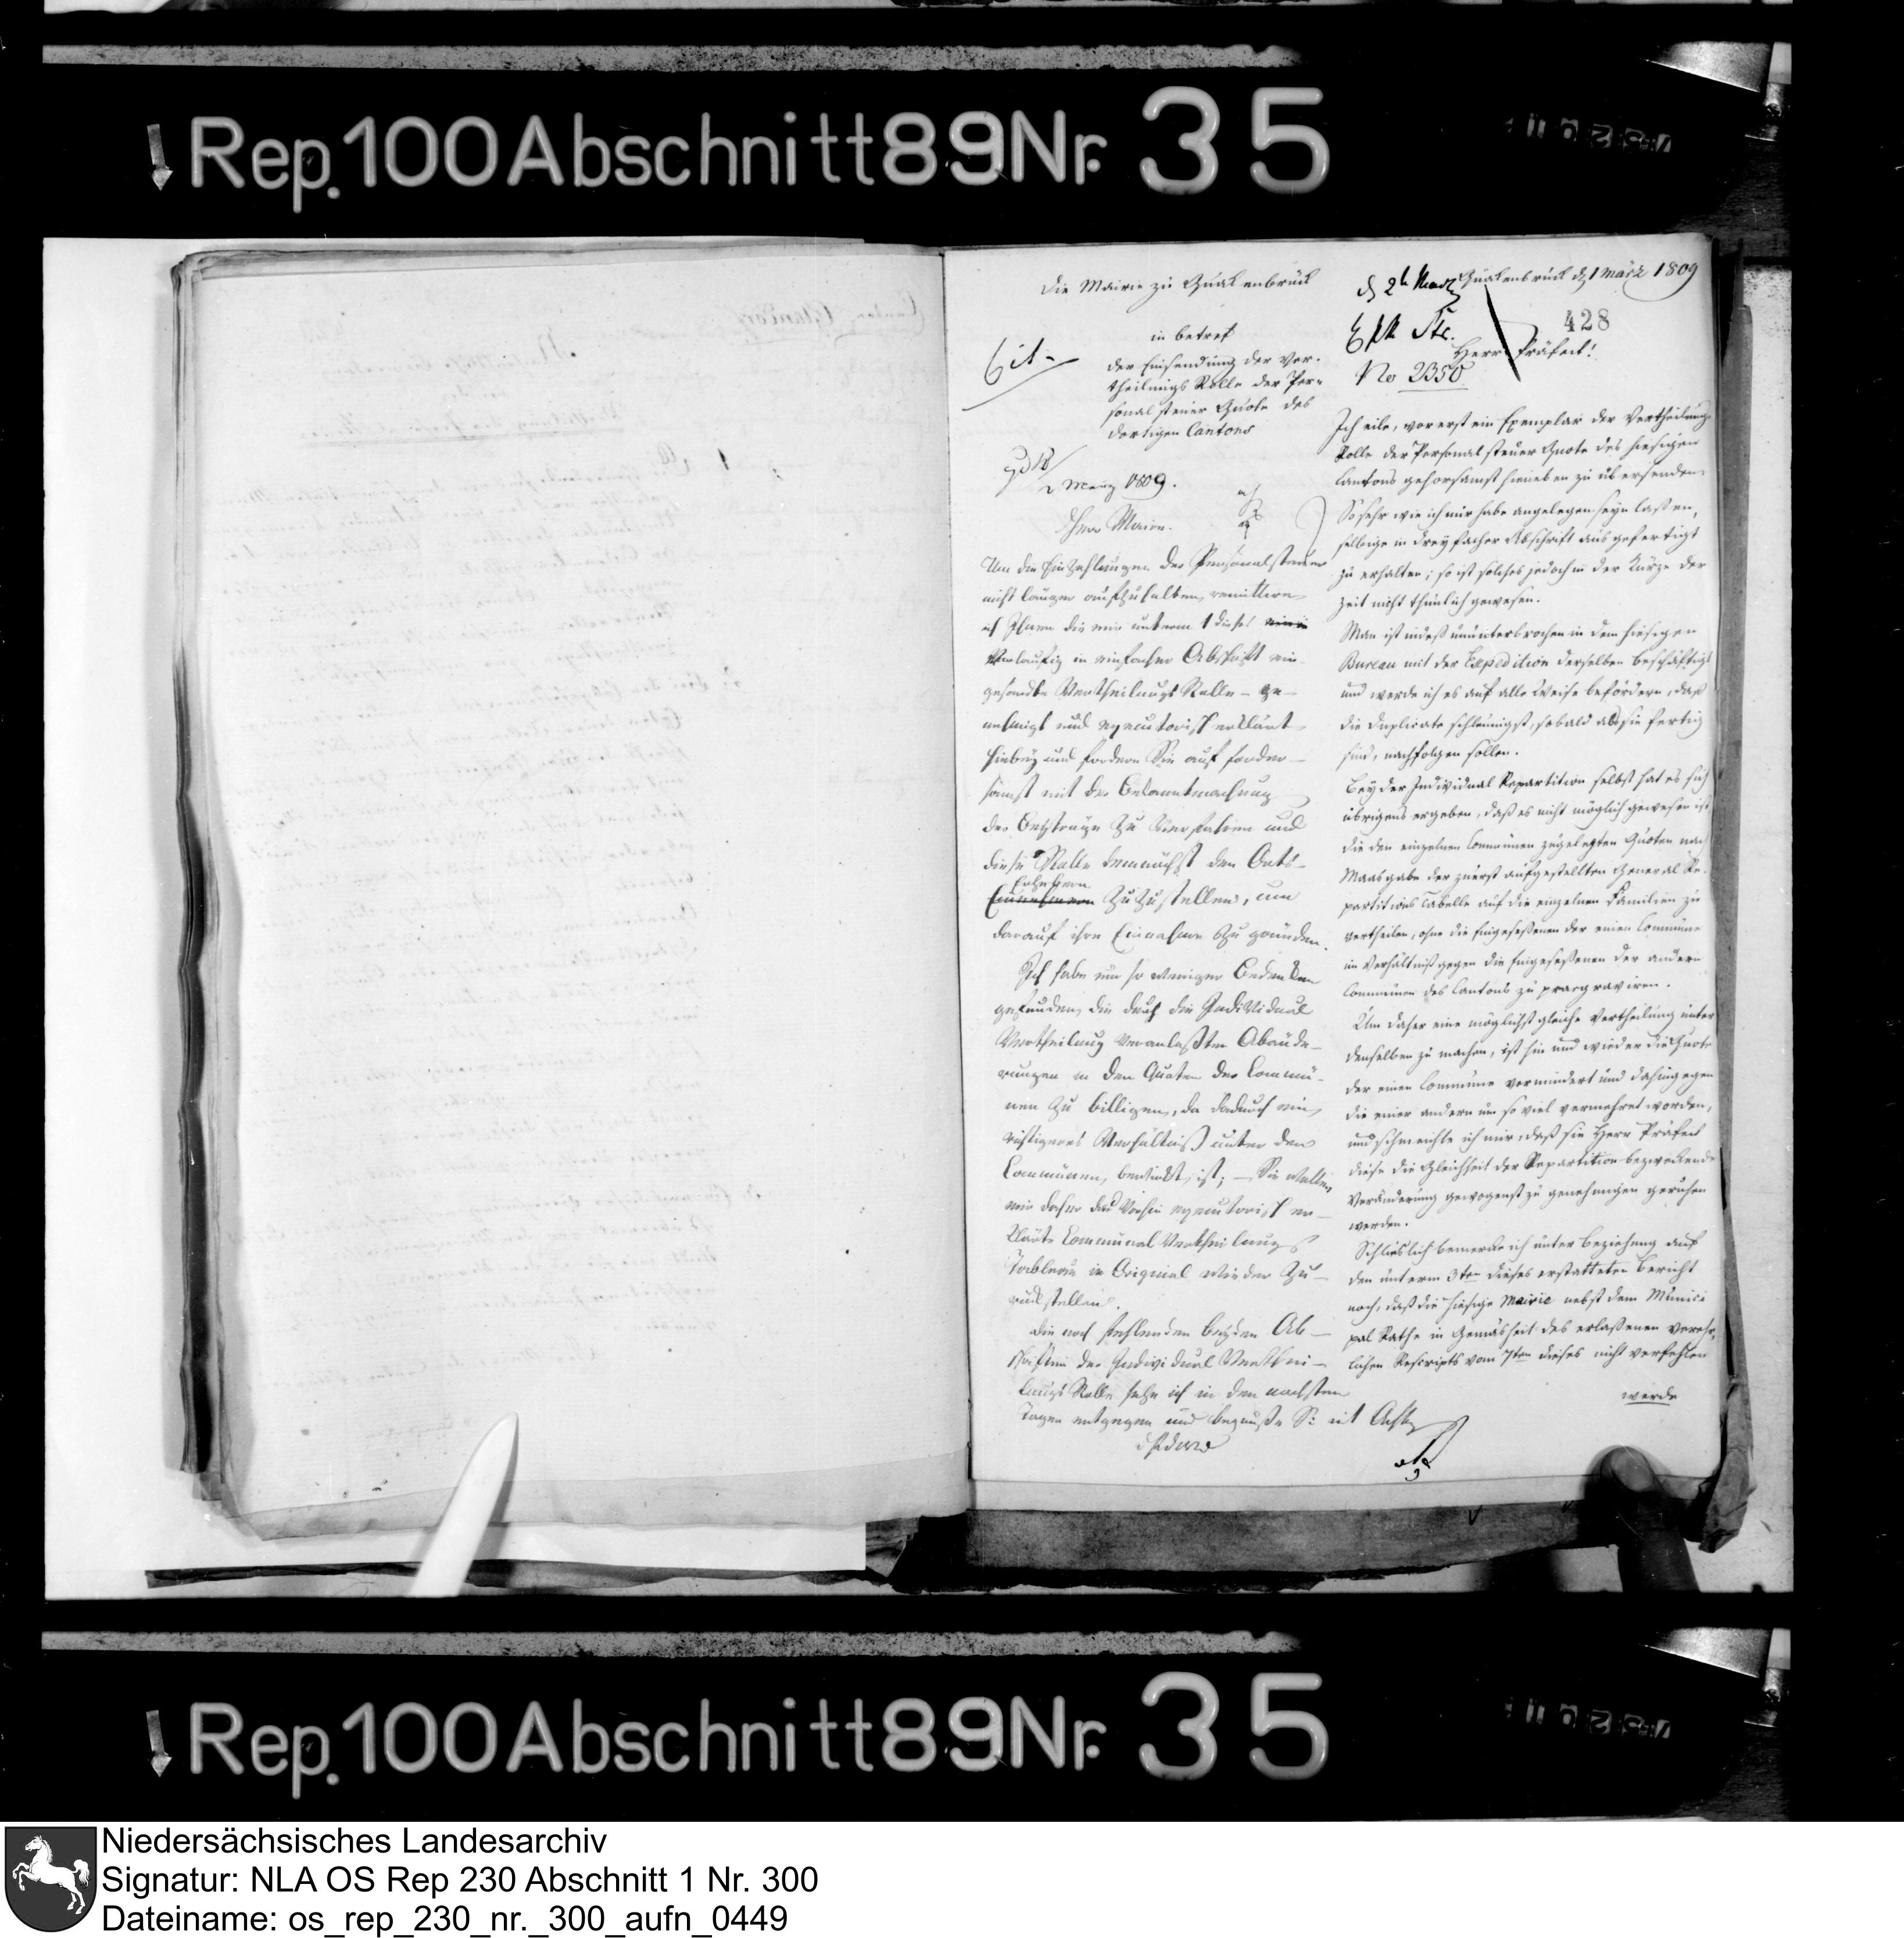 Rep. 100 Abschnitt 89 Nr. 35
Die Mairie zu Quakenbrück
in betref
der Einsendung der Ver-
theilungs Rolle der Per-
sonal steuer Quote des
dortigen Cantons
Cit.
2 Merz 1809.
Herr Maire.
Um die Einzahlungen der Personalsteuer
nicht länger aufzuhalten, remittire
ich Ihnen die mir unterm 1 dieses
Vorlaufig in einfacher Abschrift ein-
gesandte Vertheilungs Rolle – ge-
nehmigt und executorisch erklärt
hiebey und fordere Sie auf forder-
samst mit der Bekanntmachung
der Beyträge zu Verfahren und
diese Rolle demnächst den Orts-
Erhebern
Einnehmern zuzustellen, um
darauf ihre Einnahme zu gründen.
Ich habe um so weniger Bedenken
gefunden, die durch die Individual
Vertheilung Veranlaßten Abände-
rungen in den Quoten der Commü-
nen zu billigen, da dadurch ein
richtigeres Verhältniß unter den
Commünen, bewirkt, ist; – Sie wollen
mir daher das Vorhin executorisch er-
klärte Communal Vertheilungs
Tableau in Original wieder zu-
rückstellen.
Die noch fehlenden beyden Ab-
schriften der Individual Verthei-
lungs Rolle sehe ich in den nachsten
Tagen entgegen und begrüße S: mit Achtg
d 2t März
No 2350
Quakenbrück d 1 März 1809
428
Herr Präfect!
Ich eile, vorerst ein Exemplar der Vertheilungs
Rolle der Personal steuer Quote des hiesigen
Cantons gehorsamst hieneben zu übersenden.
So sehr wie ich mir habe angelegen seyn laßen,
selbige in dreyfacher Abschrift ausgefertigt
zu erhalten; so ist solches jedoch in der Kürze der
Zeit nicht thunlich gewesen.
Man ist indeß ununterbrochen in dem hiesigen
Bureau mit der Expedition derselben beschäftigt
und werde ich es auf alle Weise befördern, daß
die Duplicate schleunigst, sobald als sie fertig
sind, nachfolgen sollen.
Bey der Individual Repartition selbst hat es sich
übrigens ergeben, daß es nicht möglich gewesen ist,
die den einzelnen Communen zugelegten Quoten nach
Maasgabe der zuerst aufgestellten General Re-
partitions Tabelle auf die einzelnen Familien zu
vertheilen, ohne die Eingeseßenen der einen Commune
im Verhältniß gegen die Eingeseßenen der andern
Communen des Cantons zu praegraviren.
Um daher eine möglichst gleiche Vertheilung unter
denselben zu machen, ist hin und wieder die Quote
der einen Commune vermindert und dahingegen
die einer andern um so viel vermehret worden,
und schmeichle ich mir, daß sie Herr Präfect
diese die Gleichheit der Repartition bezweckende
Veränderung gewogenst zu genehmigen geruhen
werden.
Schlieslich bemerke ich unter Beziehung auf
den unterm 3ten dieses erstatteten Bericht
noch, daß die hiesige Mairie nebst dem Munici
pal Rathe in Gemäsheit des erlaßenen verehr-
lichen Rescripts vom 7ten dieses nicht verfehlen
werde
Rep. 100 Abschnitt 89 Nr. 35
Niedersächsisches Landesarchiv
Signatur: NLA OS Rep 230 Abschnitt 1 Nr. 300
Dateiname: os_rep_230_nr._300_aufn_0449